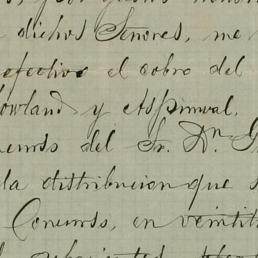 dichos Señores, me
efectivo el cobro del
owland y Aspinwal,
del Sr. Dn. G
la distribucion que
Concurso, en veintit